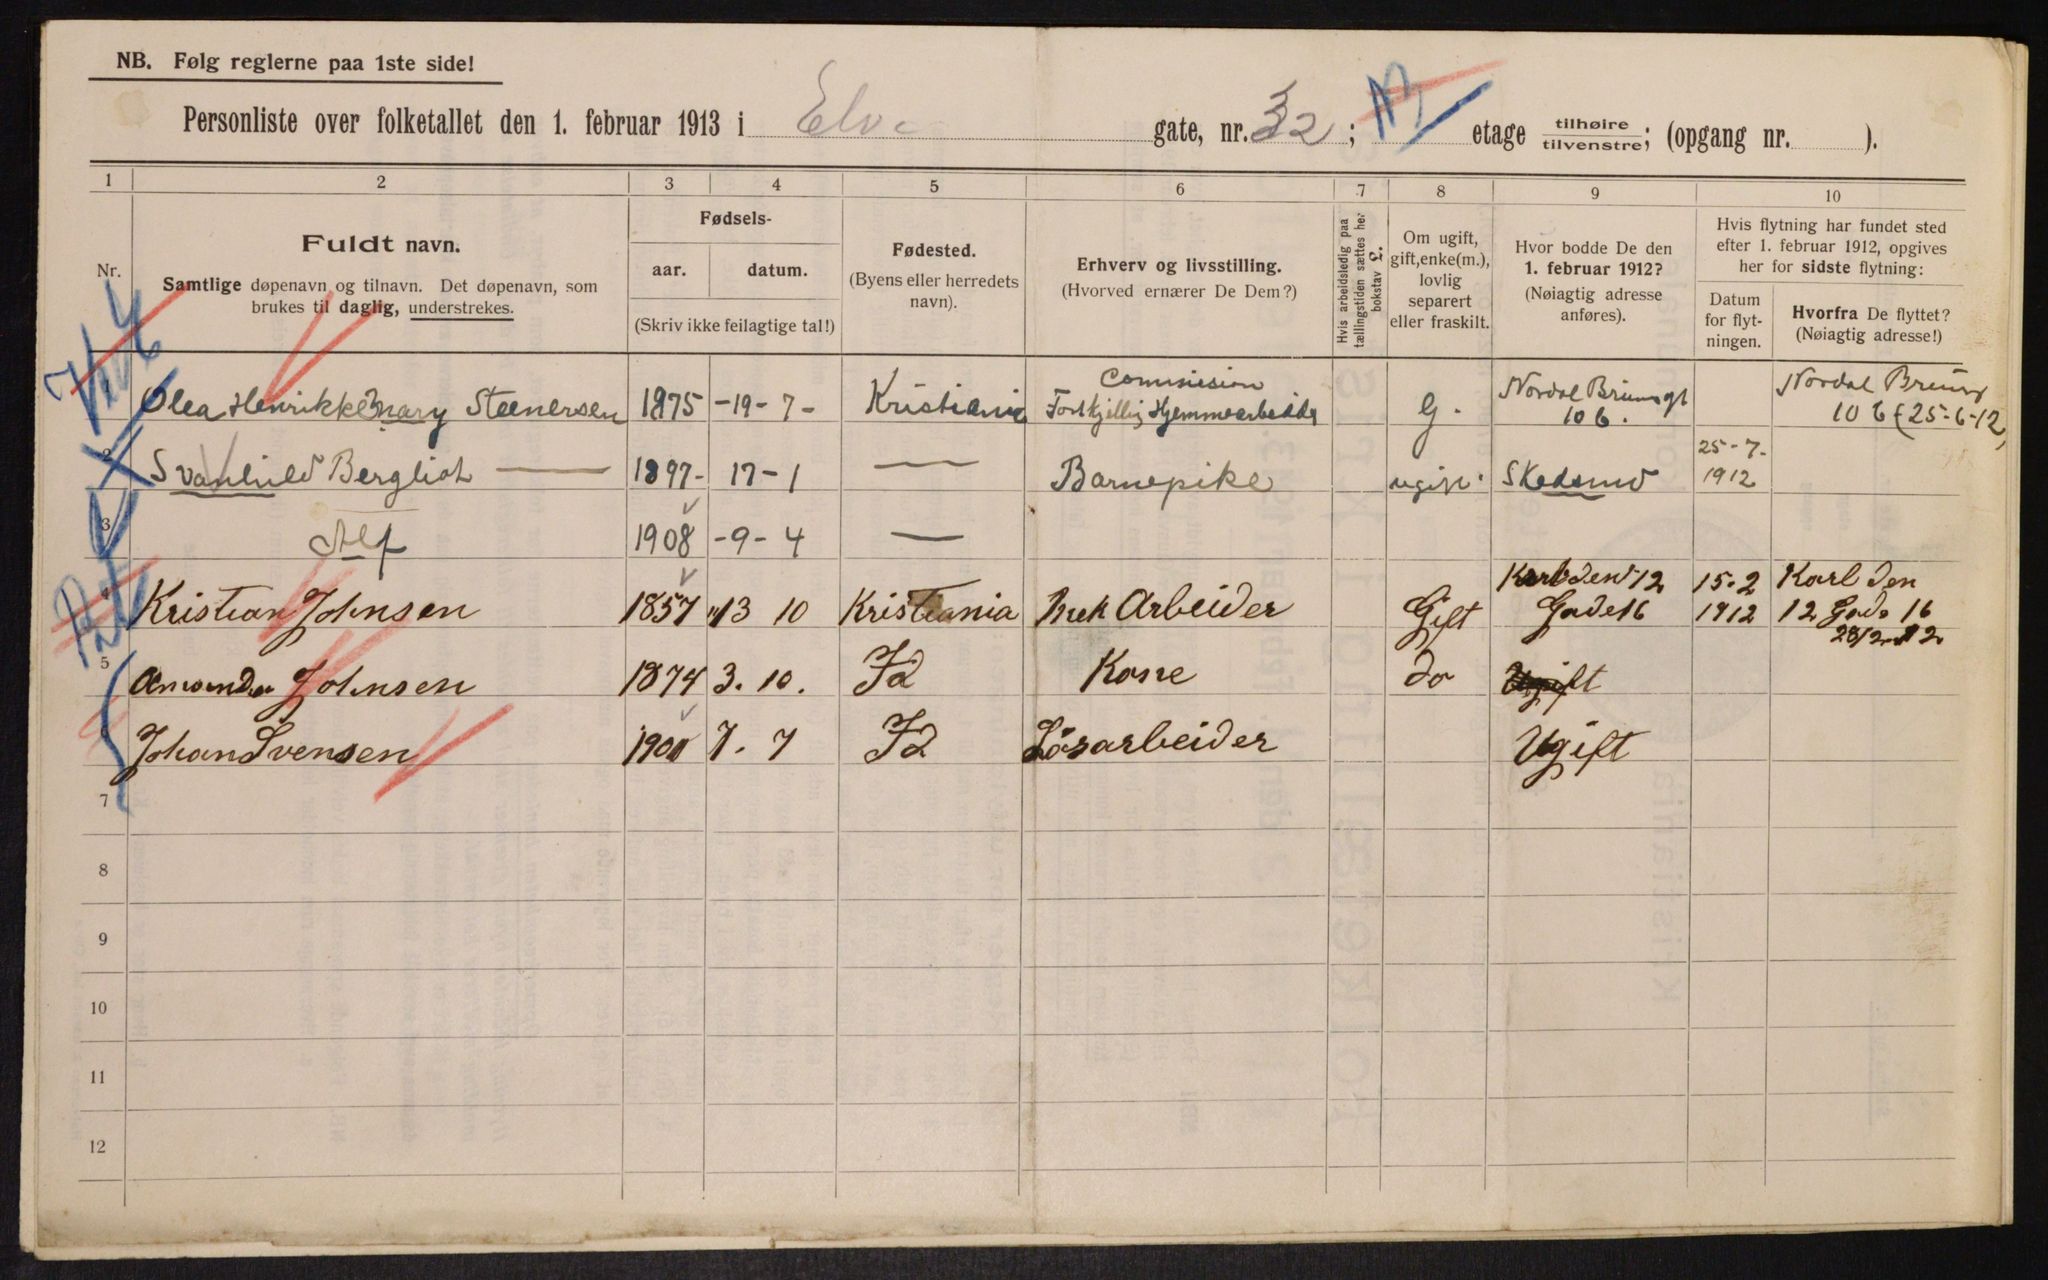 NB. Følg reglerne paa 1ste side!
Personliste over folketallet den 1. februar 1913 i Elve gate, nr. 32; etage tilhøire / tilvenstre; (opgang nr. ).
1 2 3 4 5 6 7 8 9 10
Nr.
Fuldt navn.
Samtlige døpenavn og tilnavn. Det døpenavn, som
brukes til daglig, understrekes.
Fødsels-
aar. datum.
(Skriv ikke feilagtige tal!)
Fødested.
(Byens eller herredets
navn).
Erhverv og livsstilling.
(Hvorved ernærer De Dem?)
Hvis arbeidsledig paa
tællingstiden sættes her
bokstav L.
Om ugift,
gift, enke(m.),
lovlig
separert
eller fraskilt.
Hvor bodde De den
1. februar 1912?
(Nøiagtig adresse
anføres).
Hvis flytning har fundet sted
efter 1. februar 1912, opgives
her for sidste flytning:
Datum
for flyt-
ningen.
Hvorfra De flyttet?
(Nøiagtig adresse!)
1 Olea Henrikke Mary Steenersen 1875 -19-7- Kristiania Commission Forskjellig Hjemmearbeide G. Nordal Brunsgt 10 b. Nordal Bruns 10 b (25-6-12)
2 Svanhild Bergliot — 1897- 17-1 — Barnepike ugift Skedsmo 25-7-1912
3 Alf 1908 -9-4 —
4 Kristian Johnsen 1857 13 10 Kristiania Mek Arbeider Gift Karl den 12 Gade 16 15-2 1912 Karl den 12 Gade 16 28/2 12
5 Amanda Johnsen 1874 3. 10. Id Kone do
Johan Svensen 1900 7. 7 Id Løsarbeider Ugift
7
8
9
10
11
12